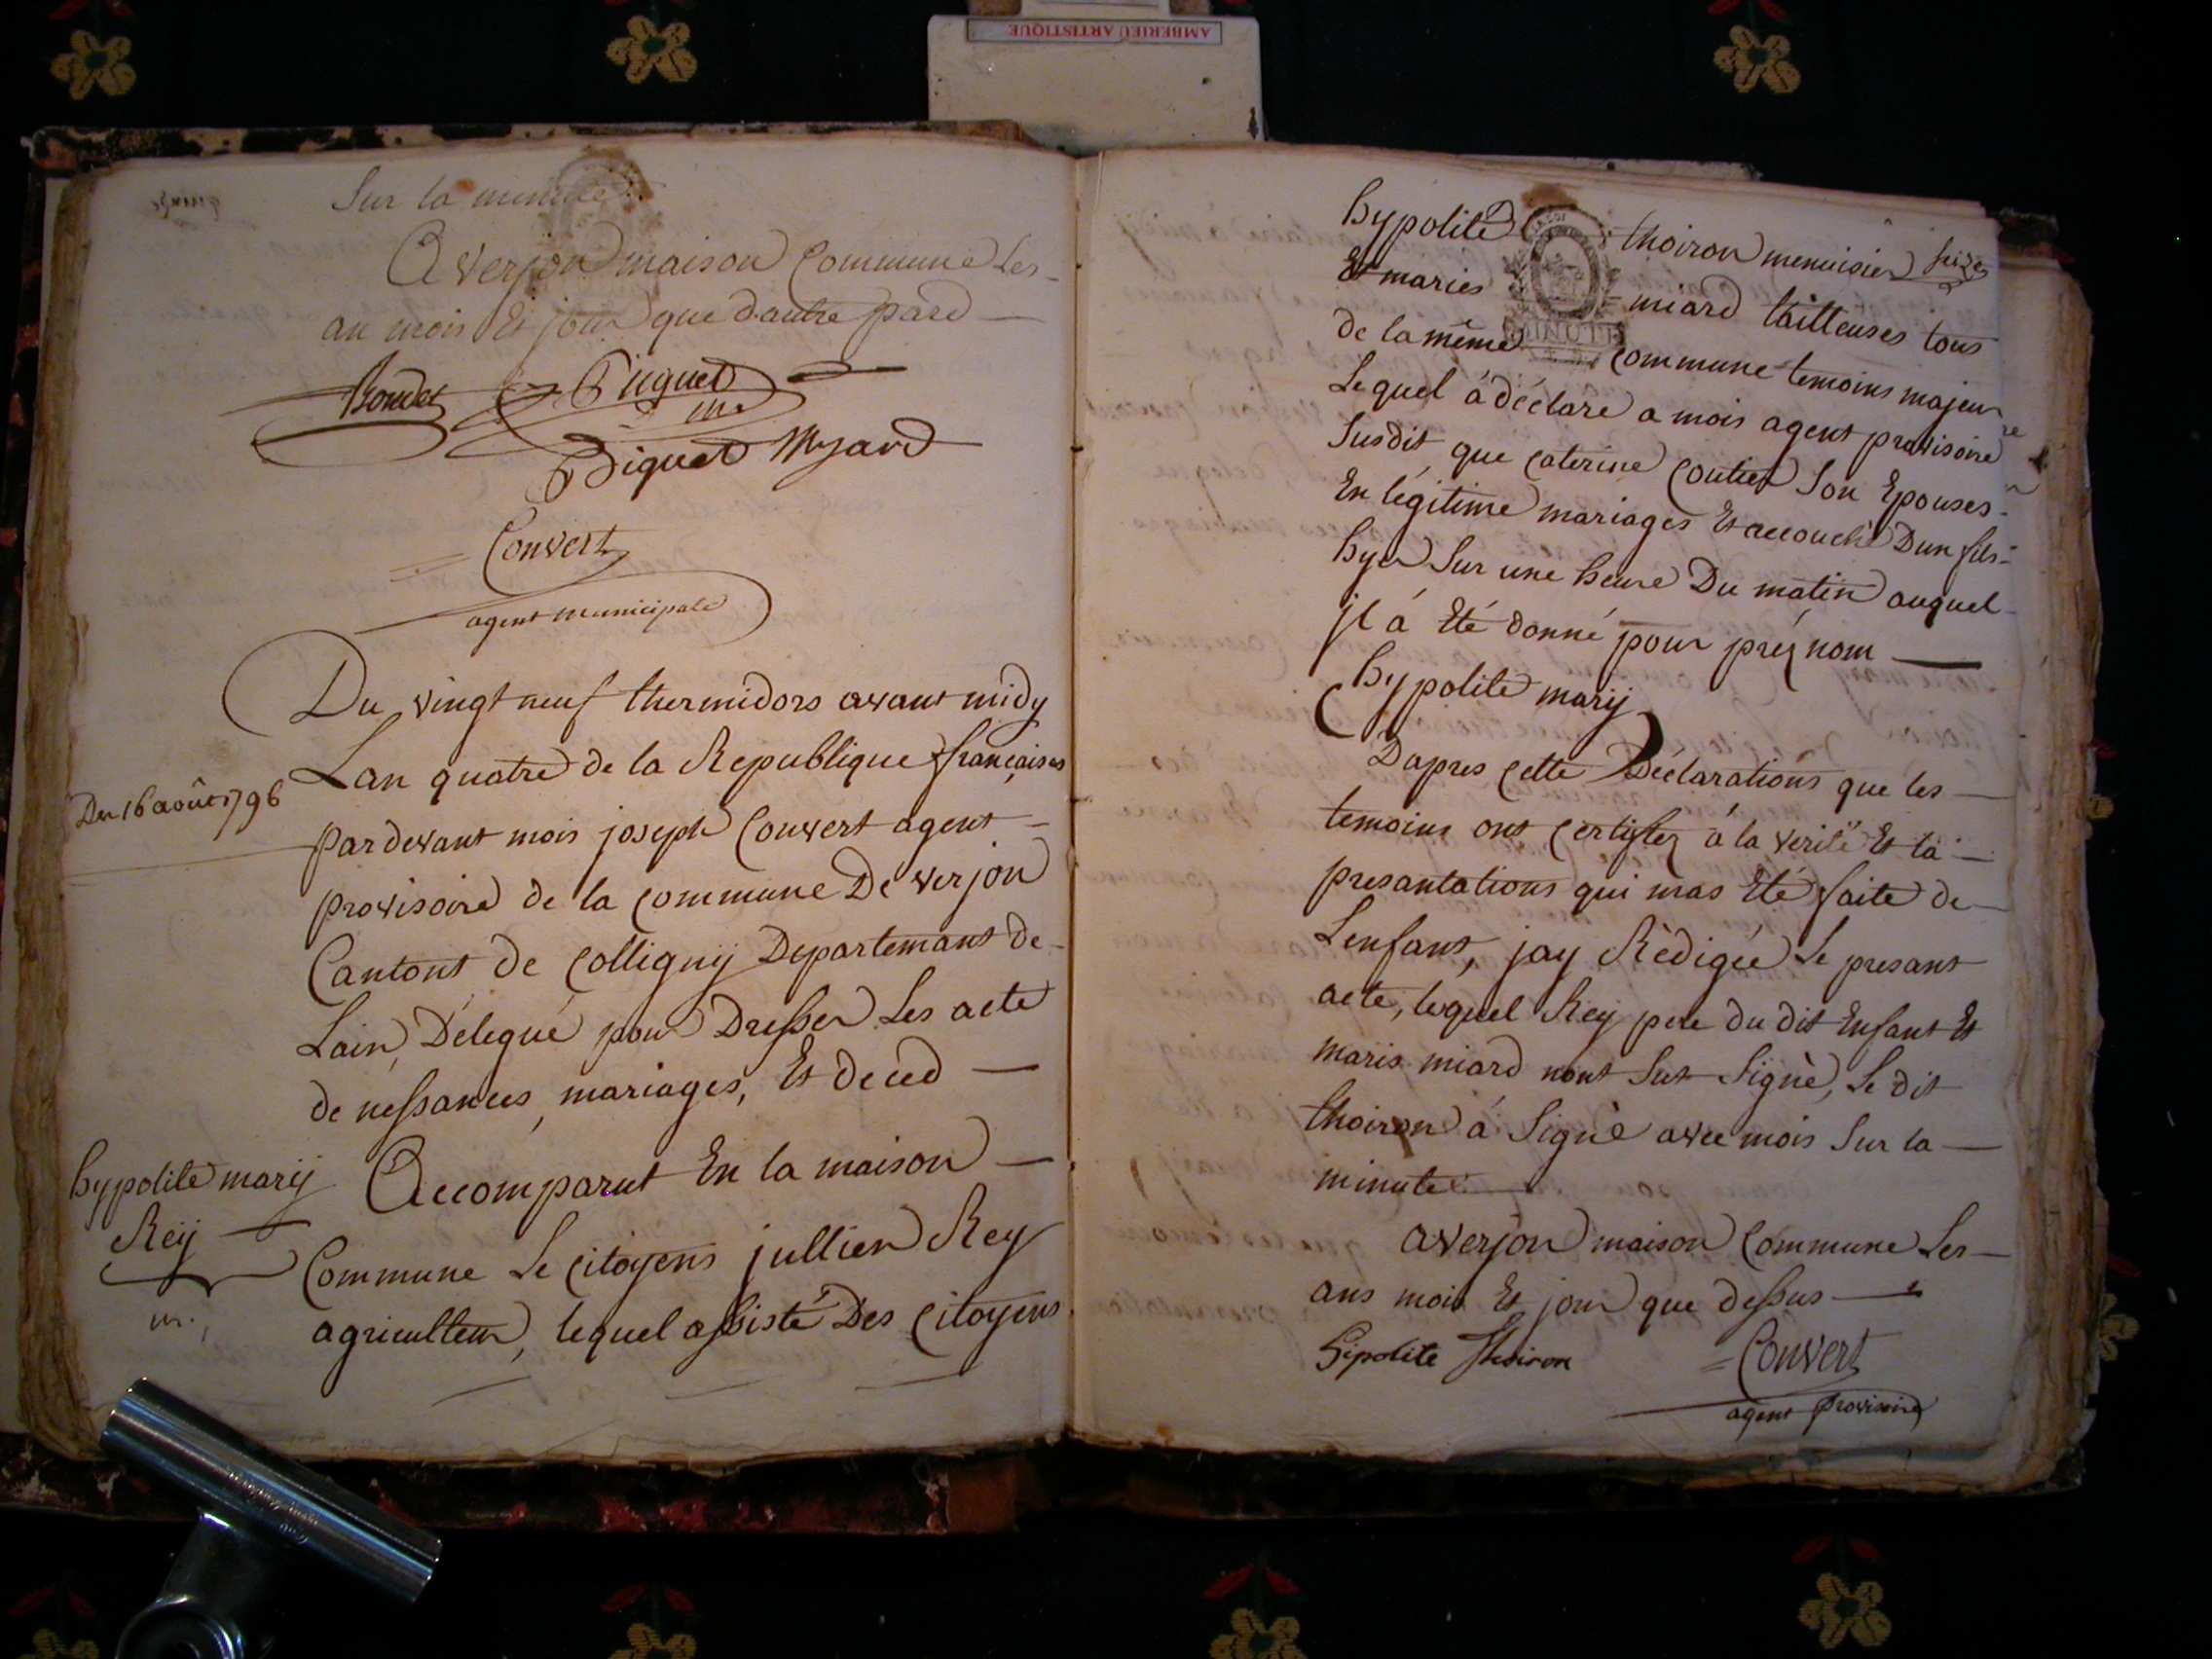 AMBERIEU ARTISTIQUE
Sur la minute
A verjon maison Commune Les
an mois Et jour que dautre pard
Boudet Piquet
Piquet Myard
Convert
agent municipale
Du vingt neuf thermidors avant midy
Lan quatre de la Republique françaises
Du 16 août 1796
par devant mois joseph Convert agent
provisoire de la commune De verjon
Cantont de Colligny Departemant de
Lain, Délegué pour Dresser Les acte
de nessances, mariages, Et deced
hypolite marÿ
Reÿ
Accomparut En la maison
Commune Le Citoyens jullien Rey
agriculteur, lequel assisté Des Citoyens
hypolite thoiron menuisier seize
Et maries miard tailleuses tous
de la même commune temoins majeur
MINUTE
Lequel á déclare a mois agent provisoire
Susdit que Caterine Coutier Son Epouses
En légitime mariages Et accouché Dun fils
hyer Sur une heure Du matin auquel
jl á Eté donné pour préz nom
hypolite marÿ
Dapres Cette Déclarations que les
temoins ont Certifiez á la verité Et la
presantations qui mas Eté faite de
Lenfant, jay Rédigée Le presant
acte, lequel Rey pere du dit Enfant Et
maris miard nont Sut Signè, Le dit
thoiron á Signè avec mois Sur la
minute
a verjon maison Commune Les
ans mois Et jour que dessus
hipolite Thoiron Convert
agent provisoire